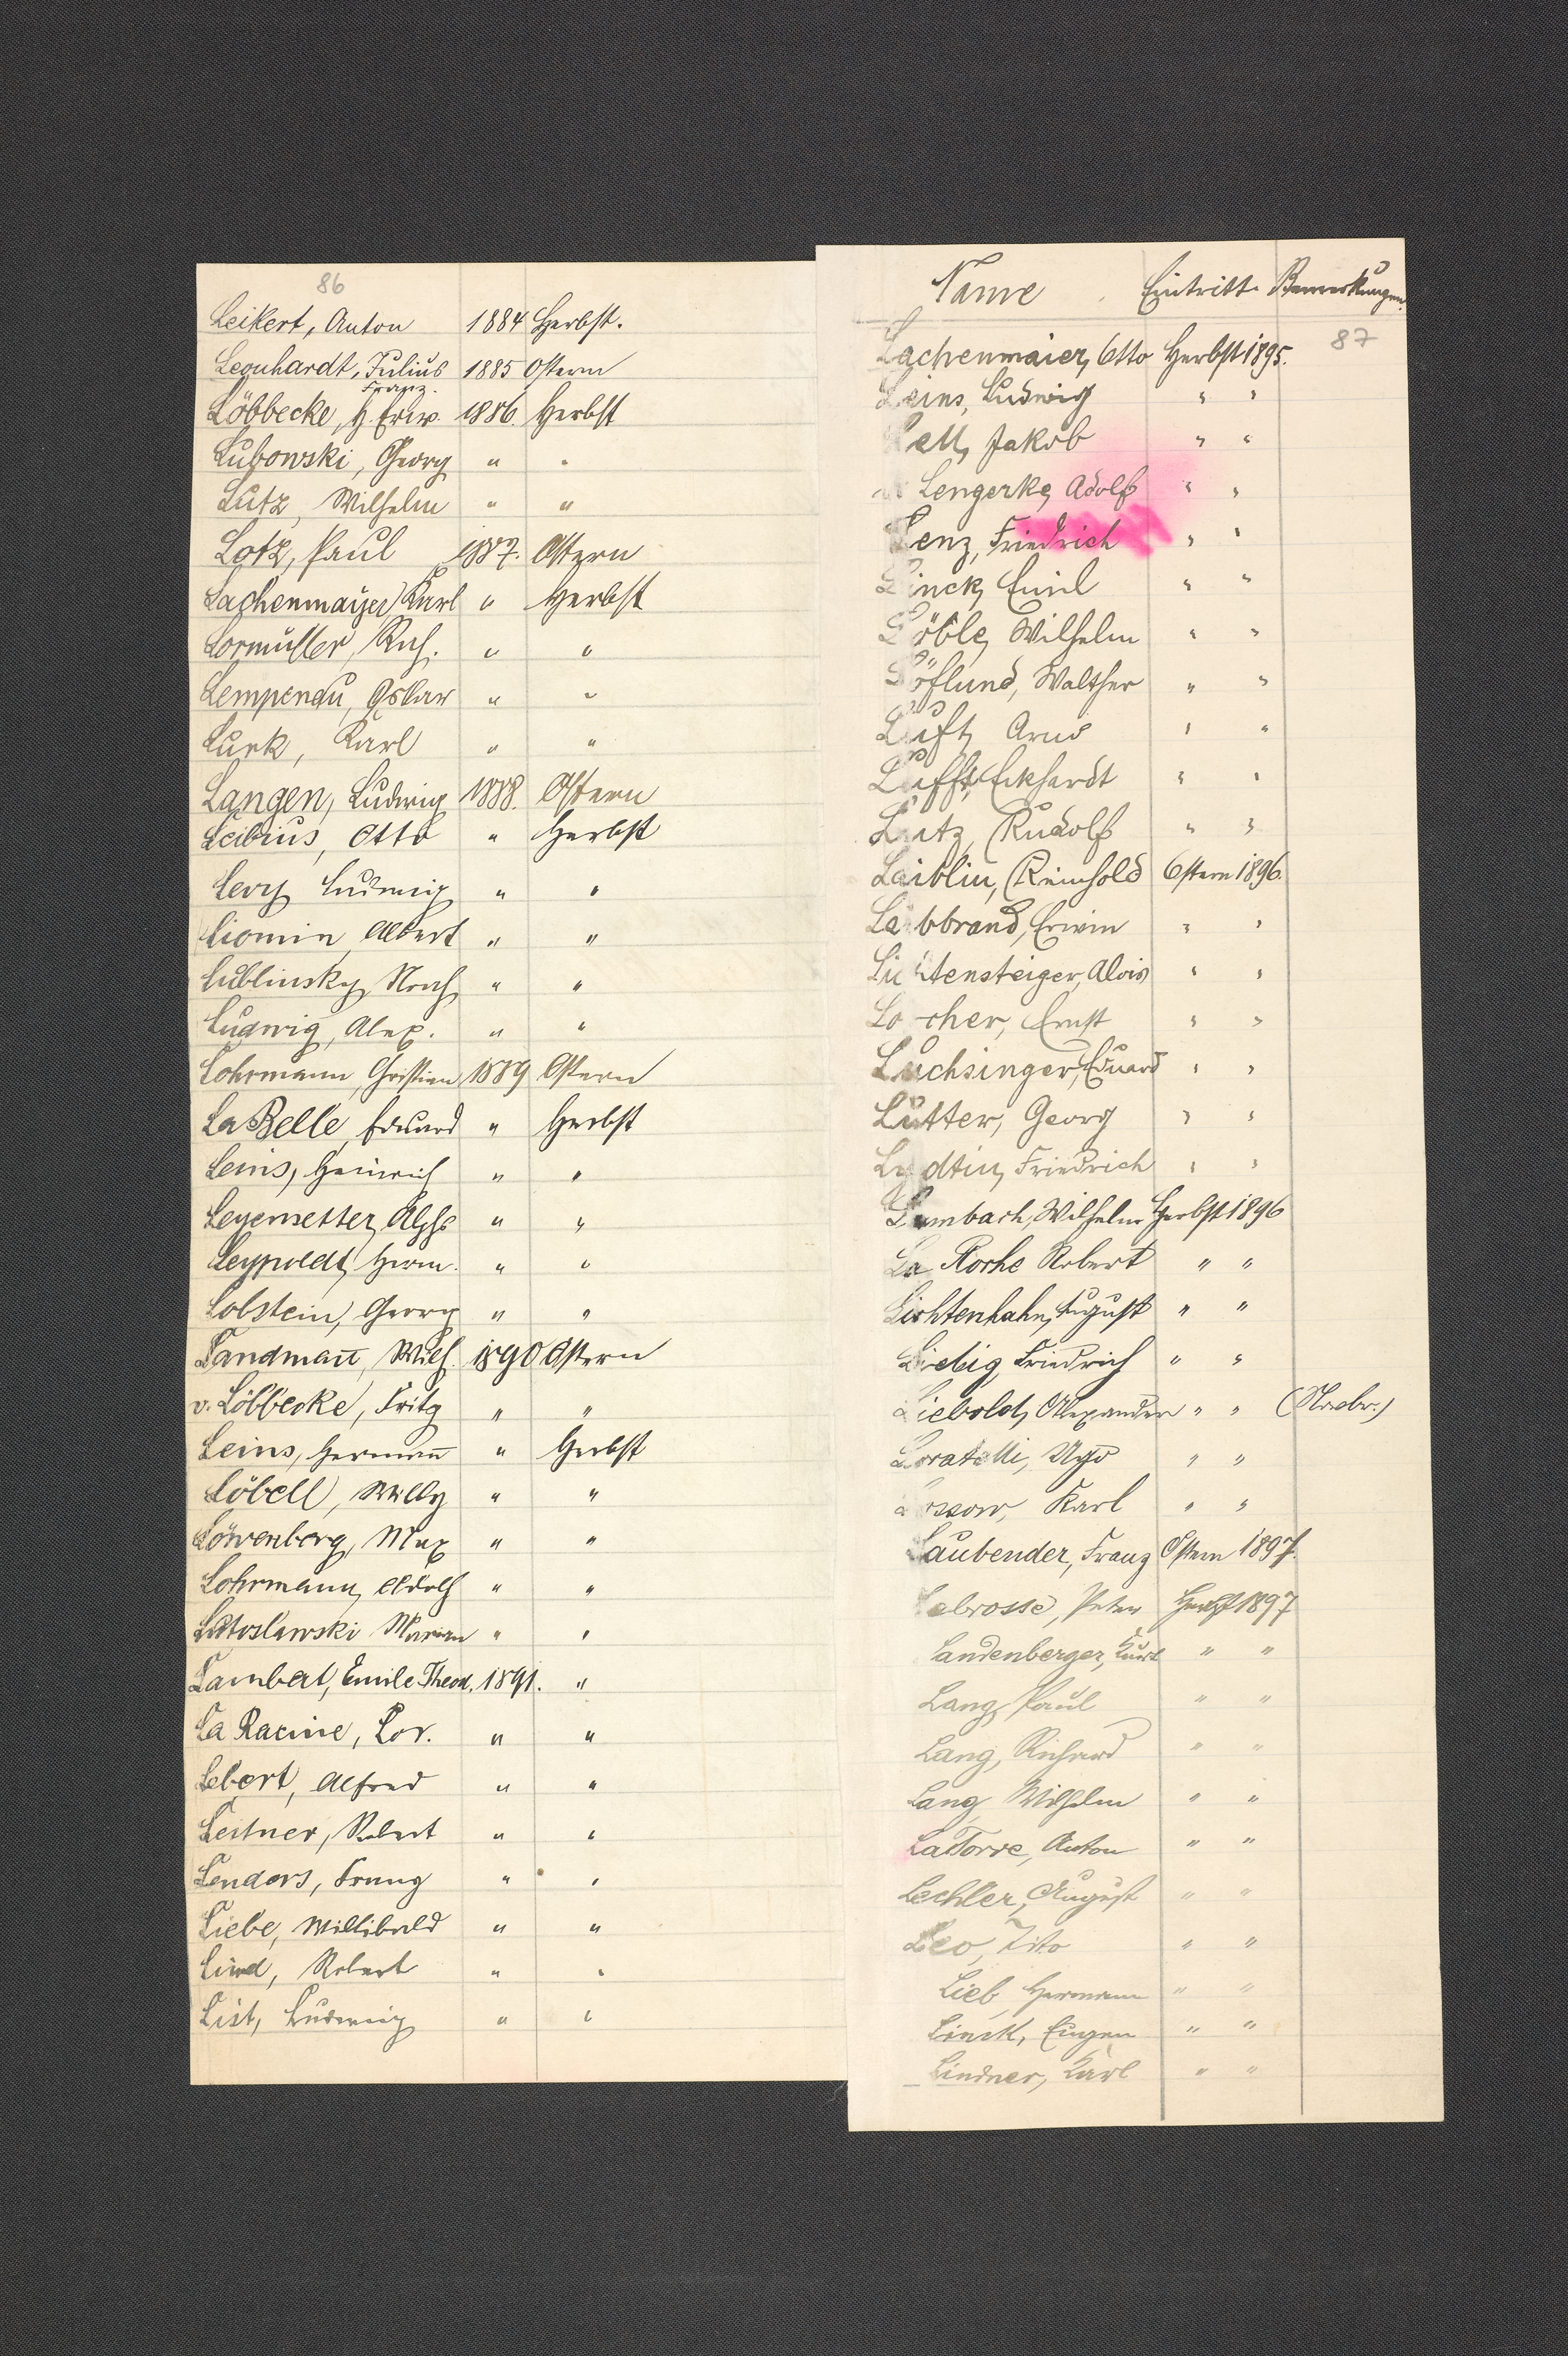 86
Leikert, Anton 1884 Herbst.
Leonhardt, Julius 1885 Ostern
Franz.
Löbbecke, H. Friw. 1886. Herbst
Lubowski, Georg " "
Lutz, Wilhelm " "
Lotz, Paul 1887. Ostern
Lachenmayer, Karl " Herbst
Lormüller, Rich. " "
Lempenau, Oskar " "
Lurk, Karl " "
Langen, Ludwig 1888. Ostern
Leibius, Otto " Herbst
Levy Ludwig " "
Liomin, Albert " "
Lublinsky, Noach " "
Ludwig, Alex. " "
Lohrmann, Christian 1889 Ostern
La Belle, Eduard " Herbst
Leins, Heinrich " "
Leyensetter, Alphs " "
Leypoldt, Herm. " "
Lobstein, Georg " "
Landmañ, Wilh. 1890 Ostern
v. Löbbecke, Fritz " "
Leins, Hermañ " Herbst
Löbell, Willy " "
Löwenberg, Max " "
Lohrmann, Adolf " "
Lutoslawski Marian " "
Lambert, Emile Theod. 1891. "
La Racine, Lor. " "
Lebert, Alfred " "
Leitner, Robert " "
Lenders, Franz " "
Liebe, Willibald " "
Lind, Robert " "
List, Ludwig " "
Name Eintritt Bemerkungen.
87
Lachenmaier, Otto Herbst 1895.
Leins, Ludwig " "
Lell, Jakob " "
v. Lengerke, Adolf " "
Lenz, Friedrich " "
Linck, Emil " "
Löble, Wilhelm " "
Löflund, Walther " "
Luft, Arno " "
Lufft, Eckhardt " "
Lutz, Rudolf " "
Laiblin, Reinhold Ostern 1896.
Laibbrand, Erwin " "
Lichtensteiger, Alois " "
Locher, Ernst " "
Luchsinger, Eduard " "
Lutter, Georg " "
Lydtin, Friedrich " "
Lambach, Wilhelm Herbst 1896
La Roche Robert " "
Lichtenhahn, August " "
Liebig, Friedrich " "
Liebold, Alexander " "
Loratelli, Ugo " "
Lossow, Karl " "
Laubender, Franz Ostern 1897.
Labrosse, Peter Herbst 1897
Landenberger, Kurt " "
Lang, Paul " "
Lang, Richard " "
Lang Wilhelm " "
LaTorre, Anton " "
Lechler, August " "
Leo, Tito " "
Lieb, Hermann " "
Linck, Eugen " "
Lindner, Karl " "